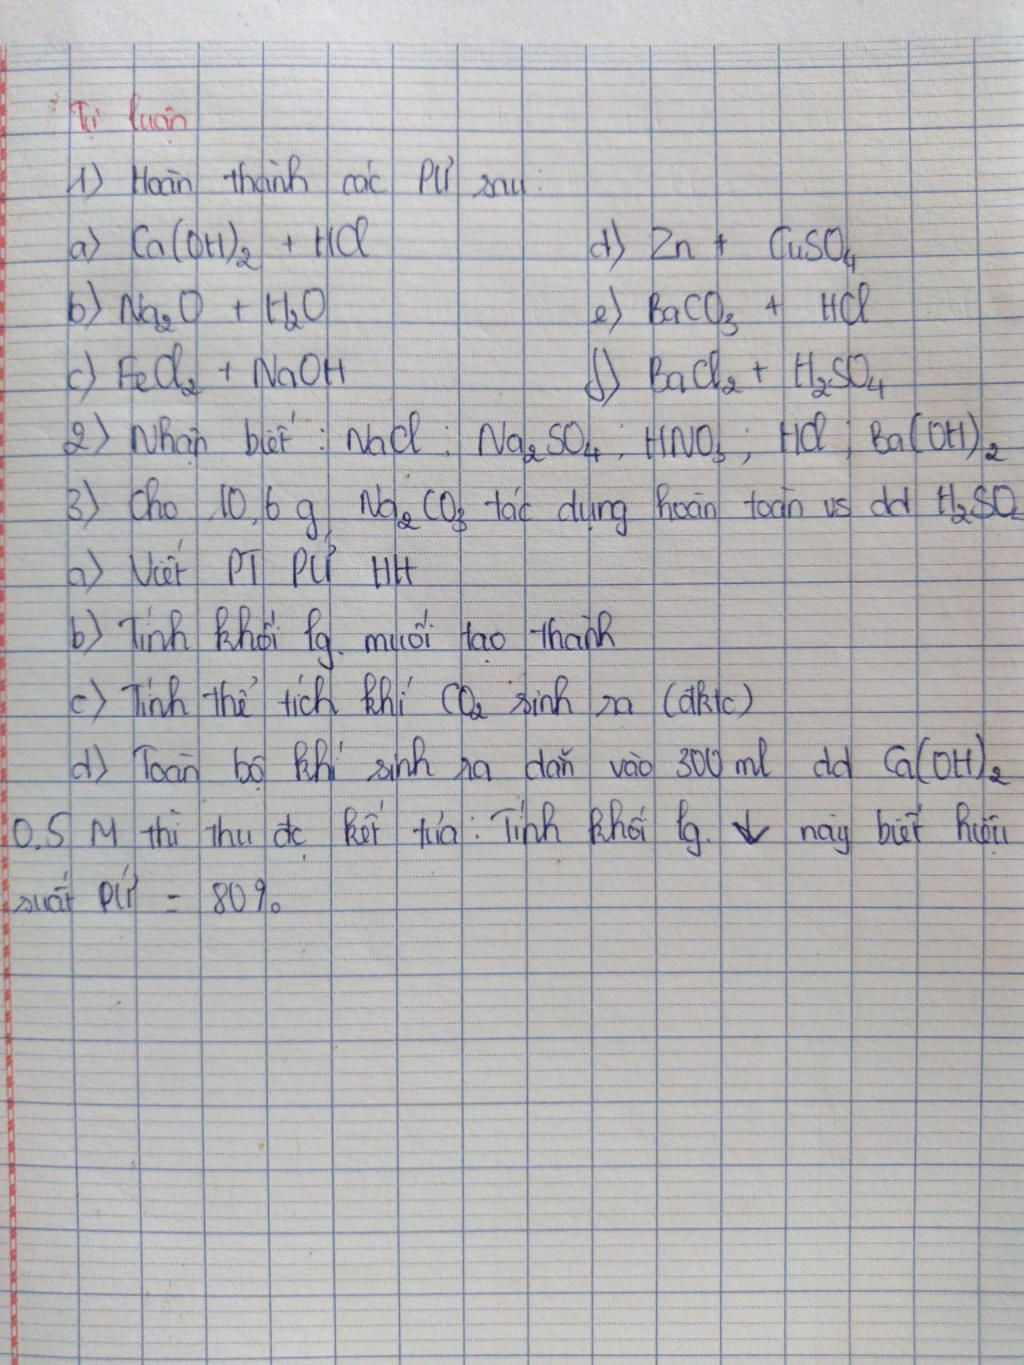 Tự luận
1) Hoàn thành các PƯ sau:
a) Ca(OH)₂ + HCl
d) Zn + CuSO₄
b) Na₂O + H₂O
e) BaCO₃ + HCl
c) FeCl₂ + NaOH
f) BaCl₂ + H₂SO₄
2) Nhận biết: NaCl; Na₂SO₄; HNO₃; HCl; Ba(OH)₂
3) Cho 10,6 g Na₂CO₃ tác dụng hoàn toàn vs dd H₂SO
a) Viết PT PƯ HH
b) Tính khối lg. muối tạo thành
c) Tính thể tích khí CO₂ sinh ra (đktc)
d) Toàn bộ khí sinh ra dẫn vào 300 ml dd Ca(OH)₂
0.5 M thì thu đc kết tủa: Tính khối lg. ↓ này biết hiệu
suất PƯ = 80%